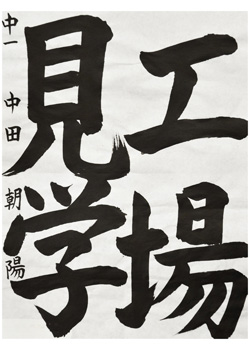 工場
見学
中一 中田 朝陽